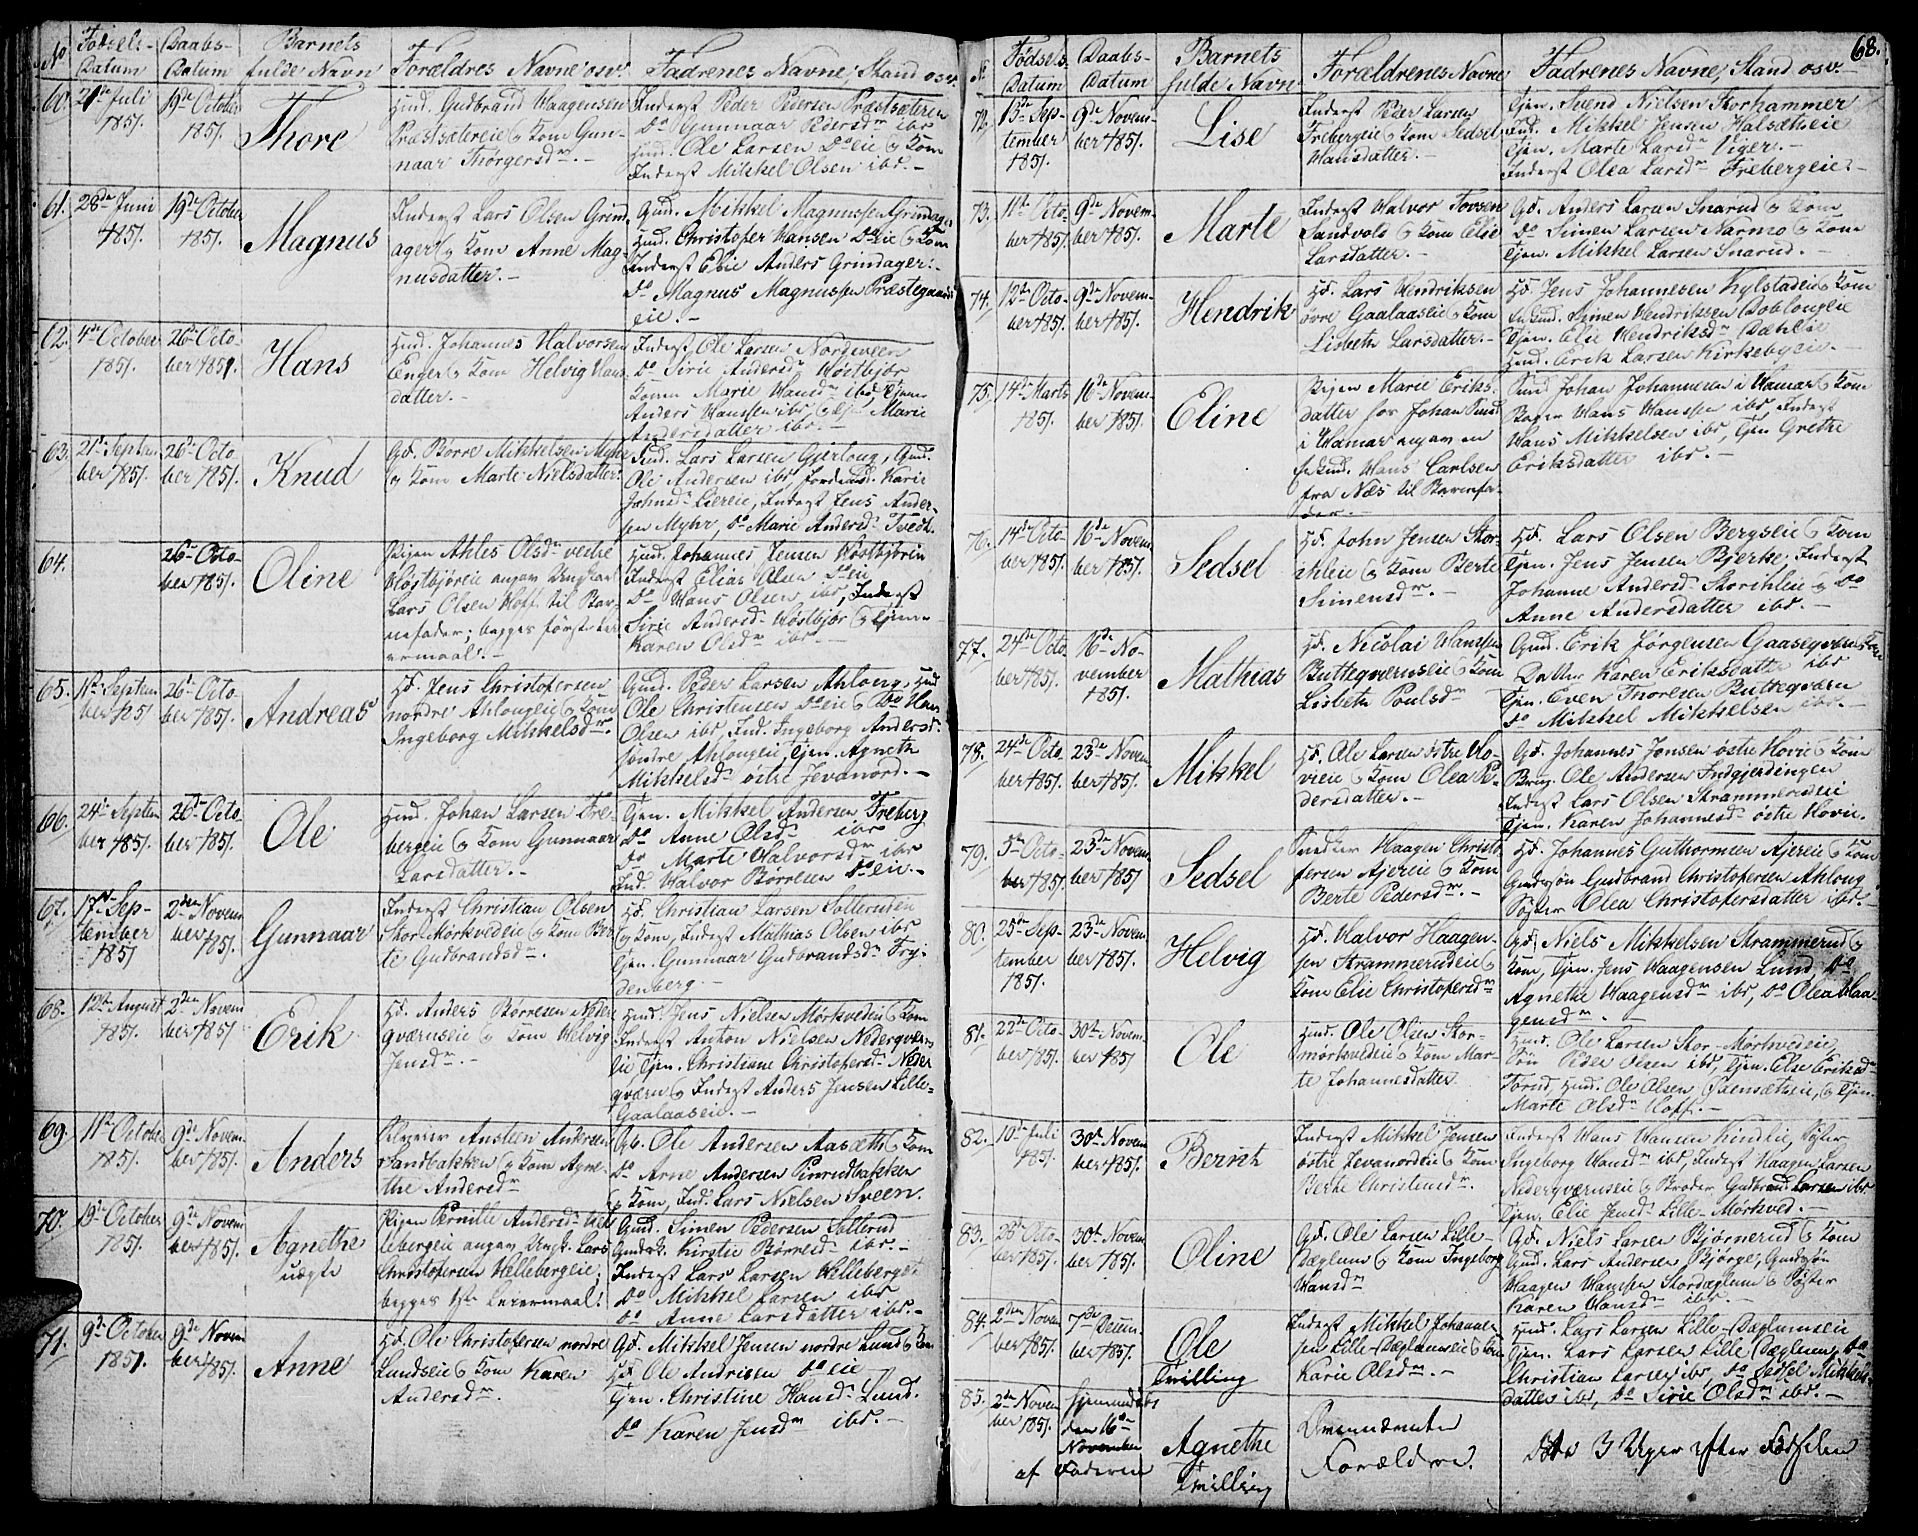 No
Fødsels-
Datum
Daabs-
Datum
Barnets
fulde Navn
Forældres Navne osv.
Fadrenes Navne, Stand osv.
60.
21de Juli
1851.
19de October
1851.
Thore
Huusd. Gudbrand Haagensen
Præstsætereie & Kone Gun-
naar Thorgersdr. -
Inderst Peder Pedersen Præstsæteren
Do Gunnaar Pedersdr ibd
Huusd. Ole Larsen Do eie & Kone
Inderst Mikkel Olsen ibd. -
61.
28de Juni
1851.
19de October
1851.
Magnus
Inderst Lars Olsen Grind-
ager & Kone Anne Mag-
nusdatter. -
Gmd. Mikkel Magnussen Grindager
Huusd. Christopher Hansen Do eie & Kone
Inderst Elie Anders Grindager. -
Do Magnus Magnussen Præstegaards
eie. -
62.
4de October
1851.
26de Octo-
ber 1851.
Hans
Huusd. Johannes Halvorsen
Enger & Kone Helvig Hans-
datter. -
Inderst Ole Larsen Nordsveen
Do Sirie Andersdr Høstbjør
Konen Marie Hansdr ibd, Tjener
Anders Hanssen ibd, & Marie
Andersdatter ibd. -
63.
21de Septem
ber 1851.
26de Octo
ber 1851.
Knud
Gd. Børre Mikkelsen Myhr
& Kone Marte Nielsdatter.
Lars Larsen Gjerlong, Gmd.
Ole Andersen ibd, Karie
Johnsdr Liereie, Inderst Jens Ander-
sen Myhr, Do Marie Andersdr Tvedt.
64.
26de Octo-
ber 1851.
Oline
Pigen Ahles Olsdr vestre
Høstbjøreie angav Ungkarl
Lars Olsen Hoff til Bar-
nefader; begges første Lei
ermaal. -
Huusd. Johannes Jensen Høstbjørin
Inderst Elias Olsen Do eie
Do Hans Olsen ibd, Inderst
Sirie Andersdr Høstbjør & Tjener
Karen Olsdr ibd. -
65.
11te Septem
ber 1851
26de Octo
ber 1851.
Andreas
Hd. Jens Christophersen
nordre Ahlongeie & Kone
Ingeborg Mikkelsdr.
Gmd. Peder Larsen Ahlong, Huusd
Ole Christensen Do eie & Do Hans
Olsen ibd, Ind. Ingeborg Andersdr
søndre Ahlongeie, Tjen. Agneth
Mikkelsdr østre Jevanord. -
66.
24de Septem
ber 1851.
26de Octo-
ber 1851.
Ole
Huusd. Johan Larsen Fre-
bergeie & Kone Gunnaar
Larsdatter. -
Tjen. Mikkel Andersen Freberg
Do Anne Olsdr ibd
Do Marte Halvorsdr ibd
Ind. Halvor Børresen Do eie. -
67.
17de Sep-
tember
1851
2den Novem
ber
1851.
Gunnaar
Inderst Christian Olsen
Stor Mørkvedeie & Kone Ber-
te Gudbrandsdr. -
Hd. Christian Larsen Solleruden
& Kone, Inderst Mathias Olsen ibd
Tjen. Gunnaar Gudbrandsdr Fry-
denberg. -
68.
12te August
1851.
2den Novem
ber 1851
Erik
Hd. Anders Børresen Neder
qværnseie & Kone Helvig
Jensdr. -
Huusd Jens Nielsen Mørkvedeie & Kone
Inderst Anton Nielsen Nederqværns
eie Tjen. Christiane Christophersdr Neder
qværn & Inderst Anders Jensen Lille-
Gaalaaseie. -
69.
11te October
1851.
9de Novem
ber 1851.
Anders
Austeen Andersen
Sandbakken & Kone Agne-
the Andersdr
Gb. Ole Andersen Aasæth & Kone
Do Arne Andersen Pinrudbakken
& Kone, Ind. Lars Nielsen Sveen.
70.
19de October
1851.
9de Novem
ber 1851.
Agnethe
uægte
Pigen Pernille Andersdr Hel
lebergeie angav Ungk. Lars
Christophersen Hellebergeie;
begges 1ste Leiermaal!
Gmd. Simen Pedersen Sollerud
Kirstie Børresdr ibd. -
Inderst Lars Larsen Helleberget
Do Mikkel Larsen ibd
Do Anne Larsdatter ibd. -
71.
9de October
1851.
9de Novem
ber 1851.
Anne
Hd. Ole Christophersen nordre
Lundseie & Kone Karen
Andersdr. -
Gd. Mikkel Jensen nordre Lund & Kone
Hd. Ole Andersen Do eie
Tjen. Christine Hansdr Lund.
Do Karen Jensdr ibd. -
68.
N.
Fødsels-
Datum
Daabs-
Datum
Barnets
fulde Navn
Forældrenes Navne
Fadrenes Navne, Stand osv. -
72.
13de Sep-
tember
1851.
9de Novem-
ber 1851.
Lise
Inderst Peder Larsen
Frebergeie & Kone Sedsel
Hansdatter. -
Tjen. Svend Nielsen Storhammer
Ind. Mikkel Jensen Halsætseie
Tjen. Marte Larsdr Viger. -
Inderst Olea Larsdr Frebergeie. -
73.
11te Octo-
ber 1851.
9de Novem-
ber 1851.
Marte
Inderst Halvor Tovsen
Sandvold & Kone Elie
Larsdatter. -
Gd. Anders Larsen Snarud & Kone
Do Simen Larsen Narmo & Kone
Tjen. Mikkel Larsen Snarud. -
74.
12te Octo-
ber 1851.
9de Novem-
ber 1851.
Hendrik
Hd. Lars Hendriksen
øvre Gaalaaseie & Kone
Lisbeth Larsdatter. -
Hd. Jens Johannesen Kylstadeie & Kone
Simen Hendriksen Doblongeie
Tjen. Elie Hendriksdr Dæhlie
Huusd. Erik Larsen Kirkebyeie. -
75.
14de Marts
1851.
16de Novem-
ber 1851.
Eline
Pigen Marie Eriks-
datter hos Johan Sund
i Hamar angav en
Hans Carlsen
fra Næs til Barnefa-
der. -
Johan Johannesen i Hamar & Kone
Bager Hans Hanssen ibd, Inderst
Hans Mikkelsen ibd, Tjen Grethe
Eriksdatter ibd. -
76.
14de Octo-
ber 1851.
16de Novem-
ber 1851.
Sedsel
Hd. John Jensen Stor-
ihleie & Kone Berte
Simensdr. -
Hd. Lars Olsen Bergseie & Kone
Tjen. Jens Jensen Bjerke, Inderst
Johanne Andersdr Storihleie & Do
Anne Andersdatter ibd. -
77.
24de Octo-
ber 1851.
16de No-
vember
1851.
Mathias
Hd. Nicolai Hanssen
Butteqværnseie & Kone
Lisbeth Poulsdr
Gmd. Erik Jørgensen Gaaseqværn & Kone
Datter Karen Eriksdatter ibd
Tjen. Even Thoresen Butteqværn
Do Mikkel Mikkelsen ibd. -
78.
24de Octo
ber 1851.
23de Novem
ber 1851.
Mikkel
Hd. Ole Larsen østre Ho-
vieie & Kone Olea Pe-
dersdatter. -
Gd. Johannes Jonsen østre Hovie & Kone
Brug. Ole Andersen Indgjerdingen
Inderst Lars Olsen Strammerudeie
Tjen. Karen Johannesdr østre Hovie.
79.
5te Octo-
ber 1851.
23de Novem
ber 1851
Sedsel
Snedker Haagen Christo-
phersen Ajereie & Kone
Berte Pedersdr. -
Hd. Johannes Guthormsen Ajereie & Kone
Gaardsøn Gudbrand Christophersen Ahlong
Søster Olea Christophersdatter ibd. -
80.
25de Sep-
tember
1851.
23de Novem
ber 1851.
Helvig
Hd. Halvor Haagen-
sen Strammerudeie &
Kone Elie Christophersdr
Gd. Niels Mikkelsen Strammerud &
Kone, Tjen. Jens Haagensen Lund, Do
Agnethe Haagensdr ibd, Do Olea Haa-
gensdr. -
81.
22de Octo-
ber 1851.
30de Novem-
ber 1851
Ole
Huusd. Ole Olsen Stor-
mørkvedeie & Kone Mar-
te Johannesdatter
Huusd. Ole Larsen Stor-Mørkvedeie,
Søn Peder Olsen ibd, Tjen. Else Eriksdr
Torud, Huusd. Ole Olsen Øxensætheie, & Tjen.
Marte Olsdr Hoff. -
82.
10de Juli
1851.
30de Novem
ber 1851.
Bernt
Inderst Mikkel Jensen
østre Jevanordeie & Kone
Berte Christiansdr.
Inderst Hans Hansen Kindlie, Søster
Ingeborg Hansdr ibd, Inderst Haagen Larsen
Nederqværnseie & Broder Gudbrand Larsen ibd.
Tjen. Elie Jensdr Lille-Mørkved. -
83.
28de Octo-
ber 1851.
30de Novem
ber 1851.
Oline
Gd. Ole Larsen Lille-
Dæglum & Kone Ingeborg
Hansdr
Gd. Niels Larsen Bjørnerud & Kone
Gmd. Lars Andersen Bjørge, Gaardsøn
Haagen Hanssen Stordæglum & Søster
Karen Hansdr ibd. -
84.
2den Novem
ber 1851.
7de Decem-
ber 1851.
Ole
Tvilling
Inderst Mikkel Johanne-
sen Lille-Dæglumseie & Kone
Karie Olsdr. -
Huusd. Lars Larsen Lille-Dæglumseie
Tjen. Lars Larsen Lille Dæglum, Do
Christian Larsen ibd, Do Sedsel Mikkels-
datter ibd, Do Sirie Olsdr ibd. -
85.
2den Novem
ber 1851.
hjemmedøbt
den 16de
November
af Faderen
Agnethe
Tvilling
Ovennævnte
Forældre.
Død 3 Uger efter Fødselen